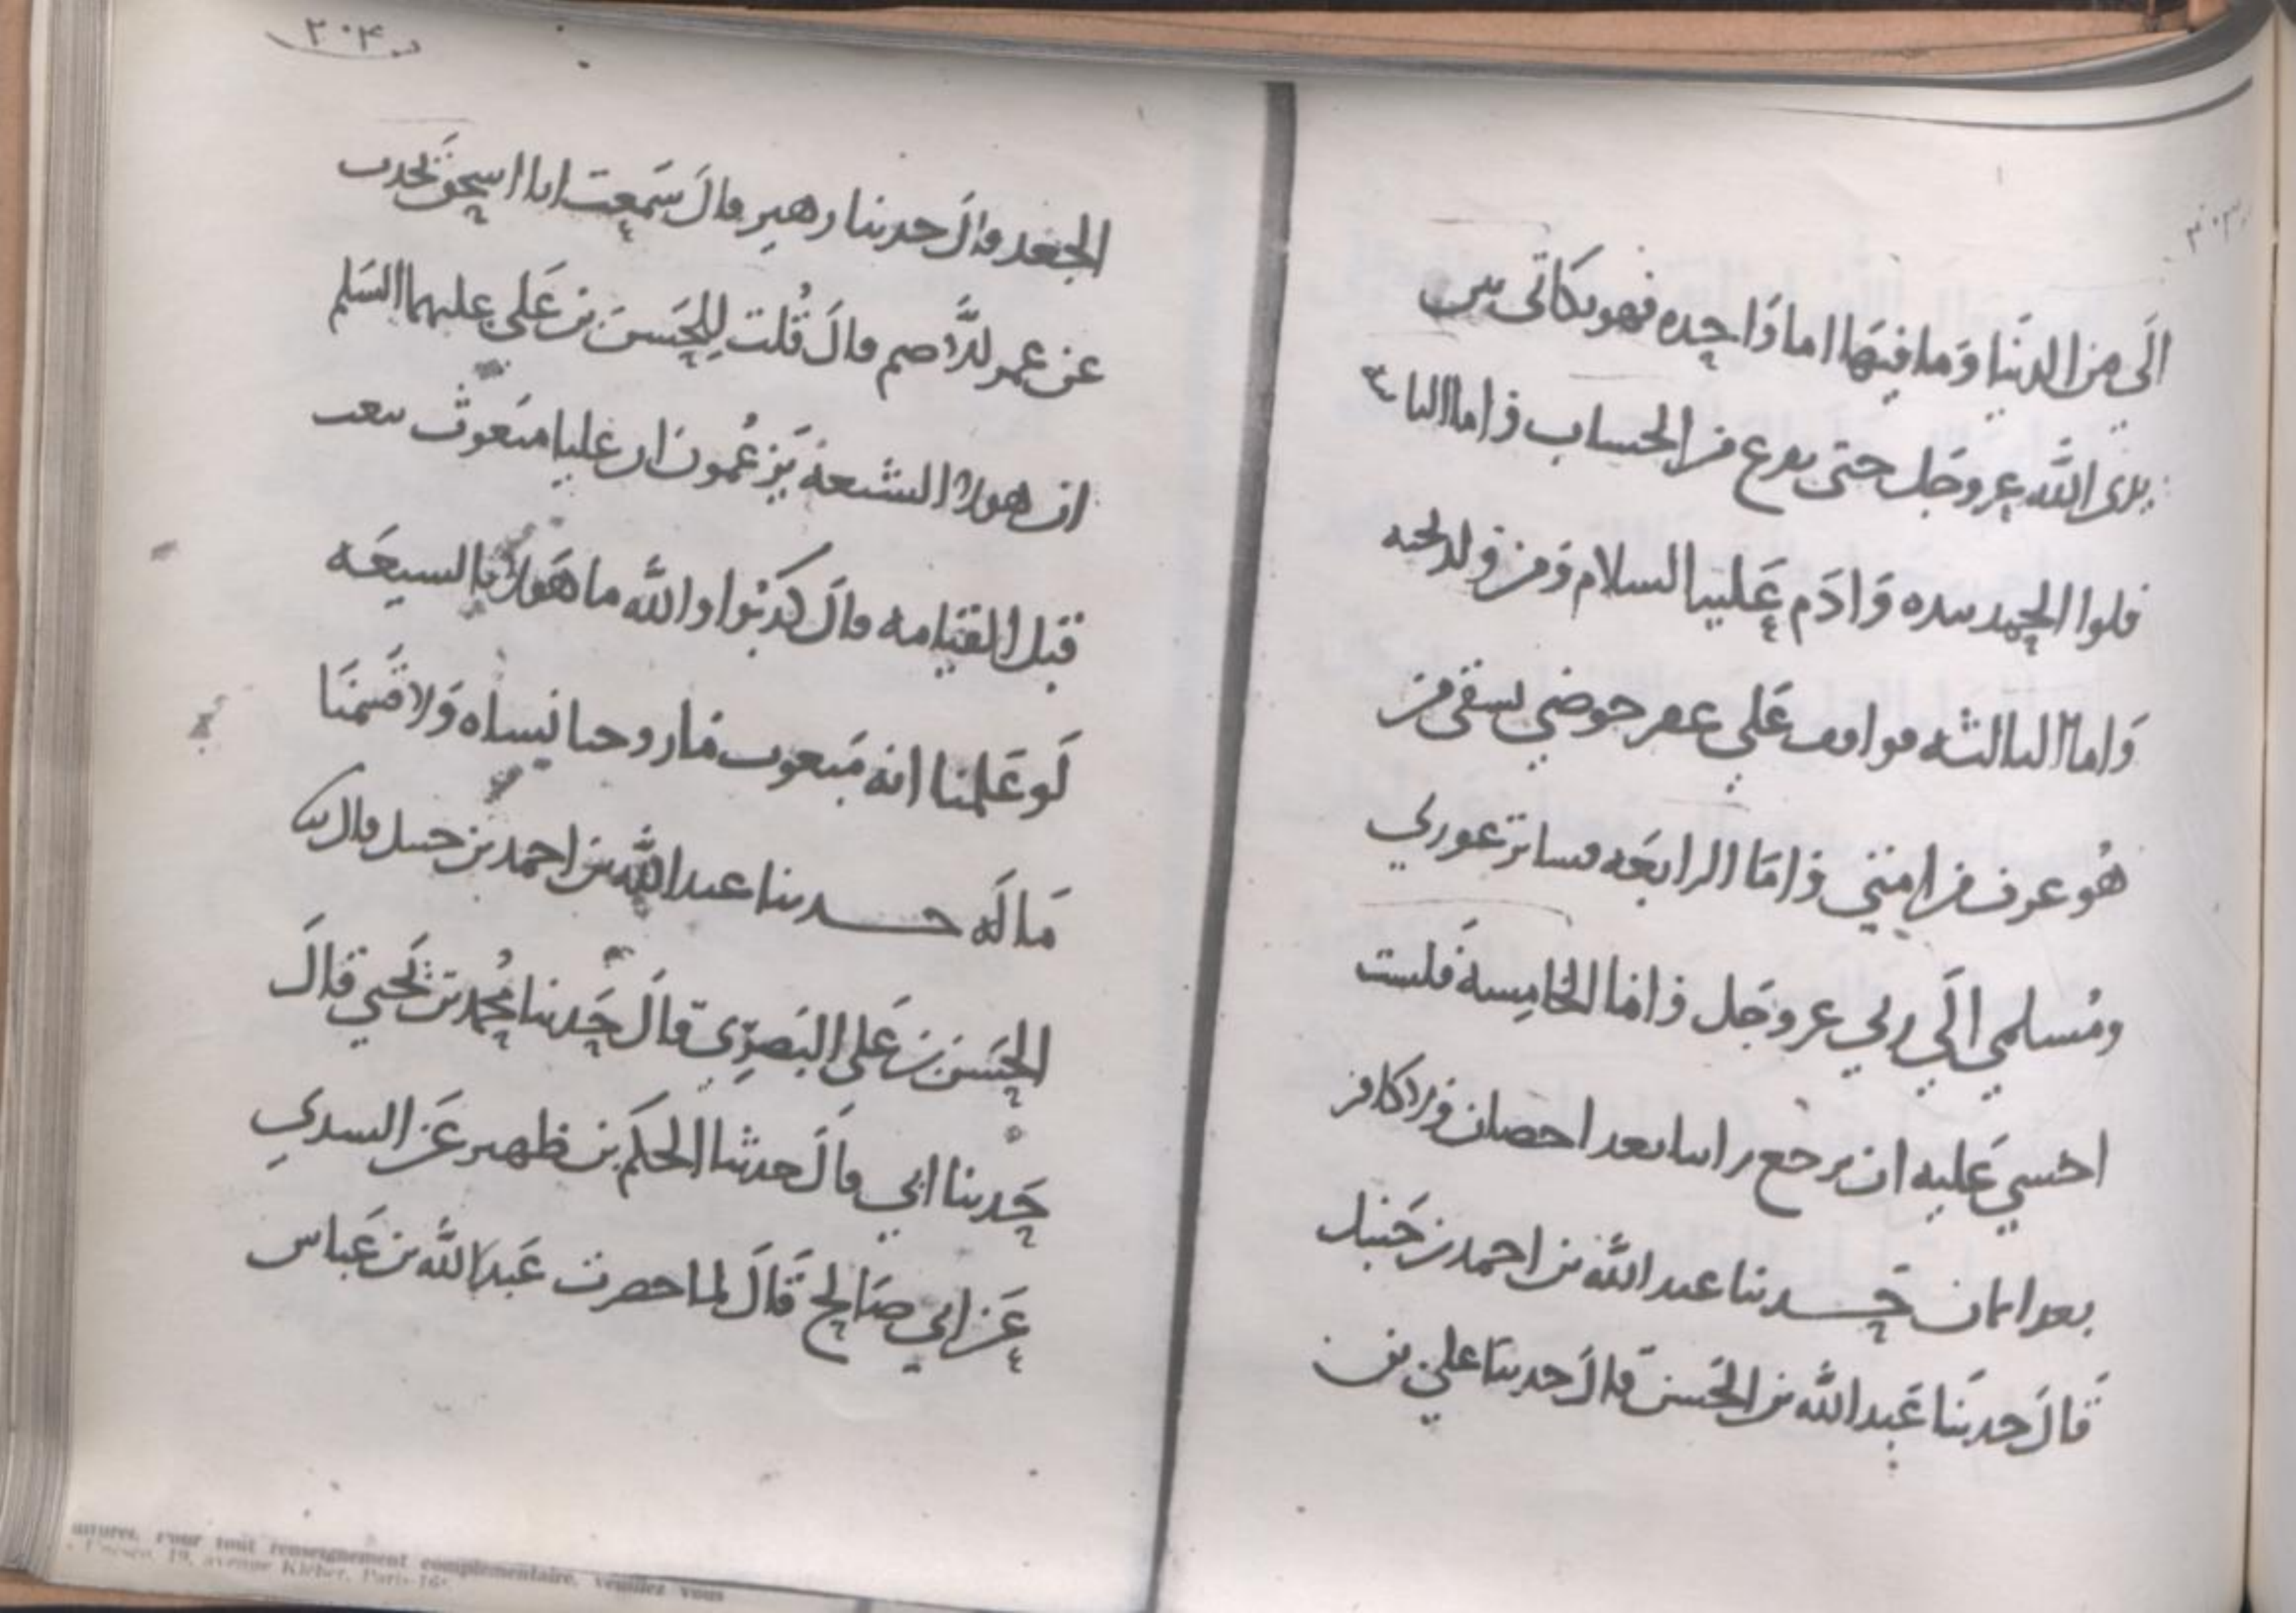 ٣٠٣
الى من الدنيا وما فيها اما واحده فهو تكاتى بين
يدى الله عز وجل حتى يفرغ من الحساب واما الثانية
فلوا الحمد بيده وادم عليه السلام ومن ولد تحته
واما الثالثه فواقف على عقر حوضي يسقي من
هو عرف من امتي واما الرابعه فساتر عورتي
ومسلمي الى ربي عز وجل واما الخامسة فلست
اخشي عليه ان يرجع زانيا بعد احصان ولا كافر
بعد ايمان حدثنا عبد الله بن احمد بن حنبل
قال حدثنا عبد الله بن الحسن قال حدثنا علي بن
٣٠٤
الجعد قال حدثنا زهير قال سمعت ابا اسحق يحدث
عن عمر الاصم قال قلت للحسن بن علي عليهما السلم
ان هولا الشيعة يزعمون ان عليا مبعوث
قبل القيامه قال كذبوا والله ما هولا بالشيعه
لو علمنا انه مبعوث ما زوجنا نساه ولا قسمنا
ماله حدثنا عبد الله بن احمد بن حنبل قال
الحسن بن على البصري قال حدثنا محمد بن يحيي قال
حدثنا ابي قال حدثنا الحكم بن ظهير عن السدي
عن ابي صالح قال لما حضرت عبد الله بن عباس
Pour tout renseignement complémentaire, veuillez vous
19, avenue Kléber, Paris-16e